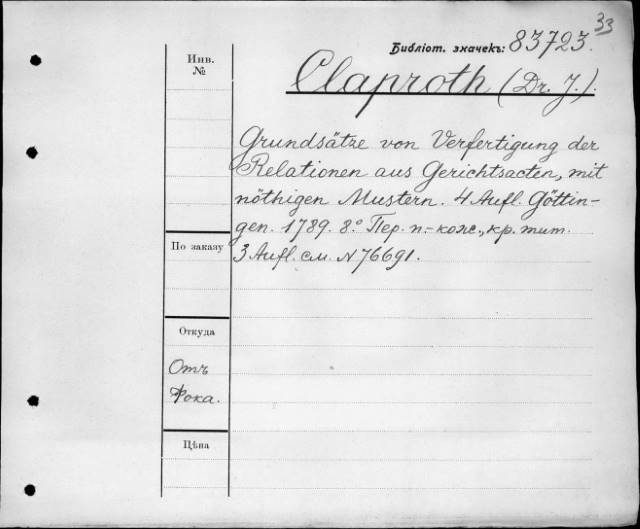 33
Библіот. значекъ: 83723.
Инв.
№
Claproth (Dr. J.).
Grundsätze von Verfertigung der
Relationen aus Gerichtsacten, mit
nöthigen Mustern. 4 Aufl. Götting-
gen. 1789. 8.º Пер. п.-кож., кр. тит.
По заказу
3 Aufl. см. N 76691.
Откуда
Отъ
Фока.
Цѣна